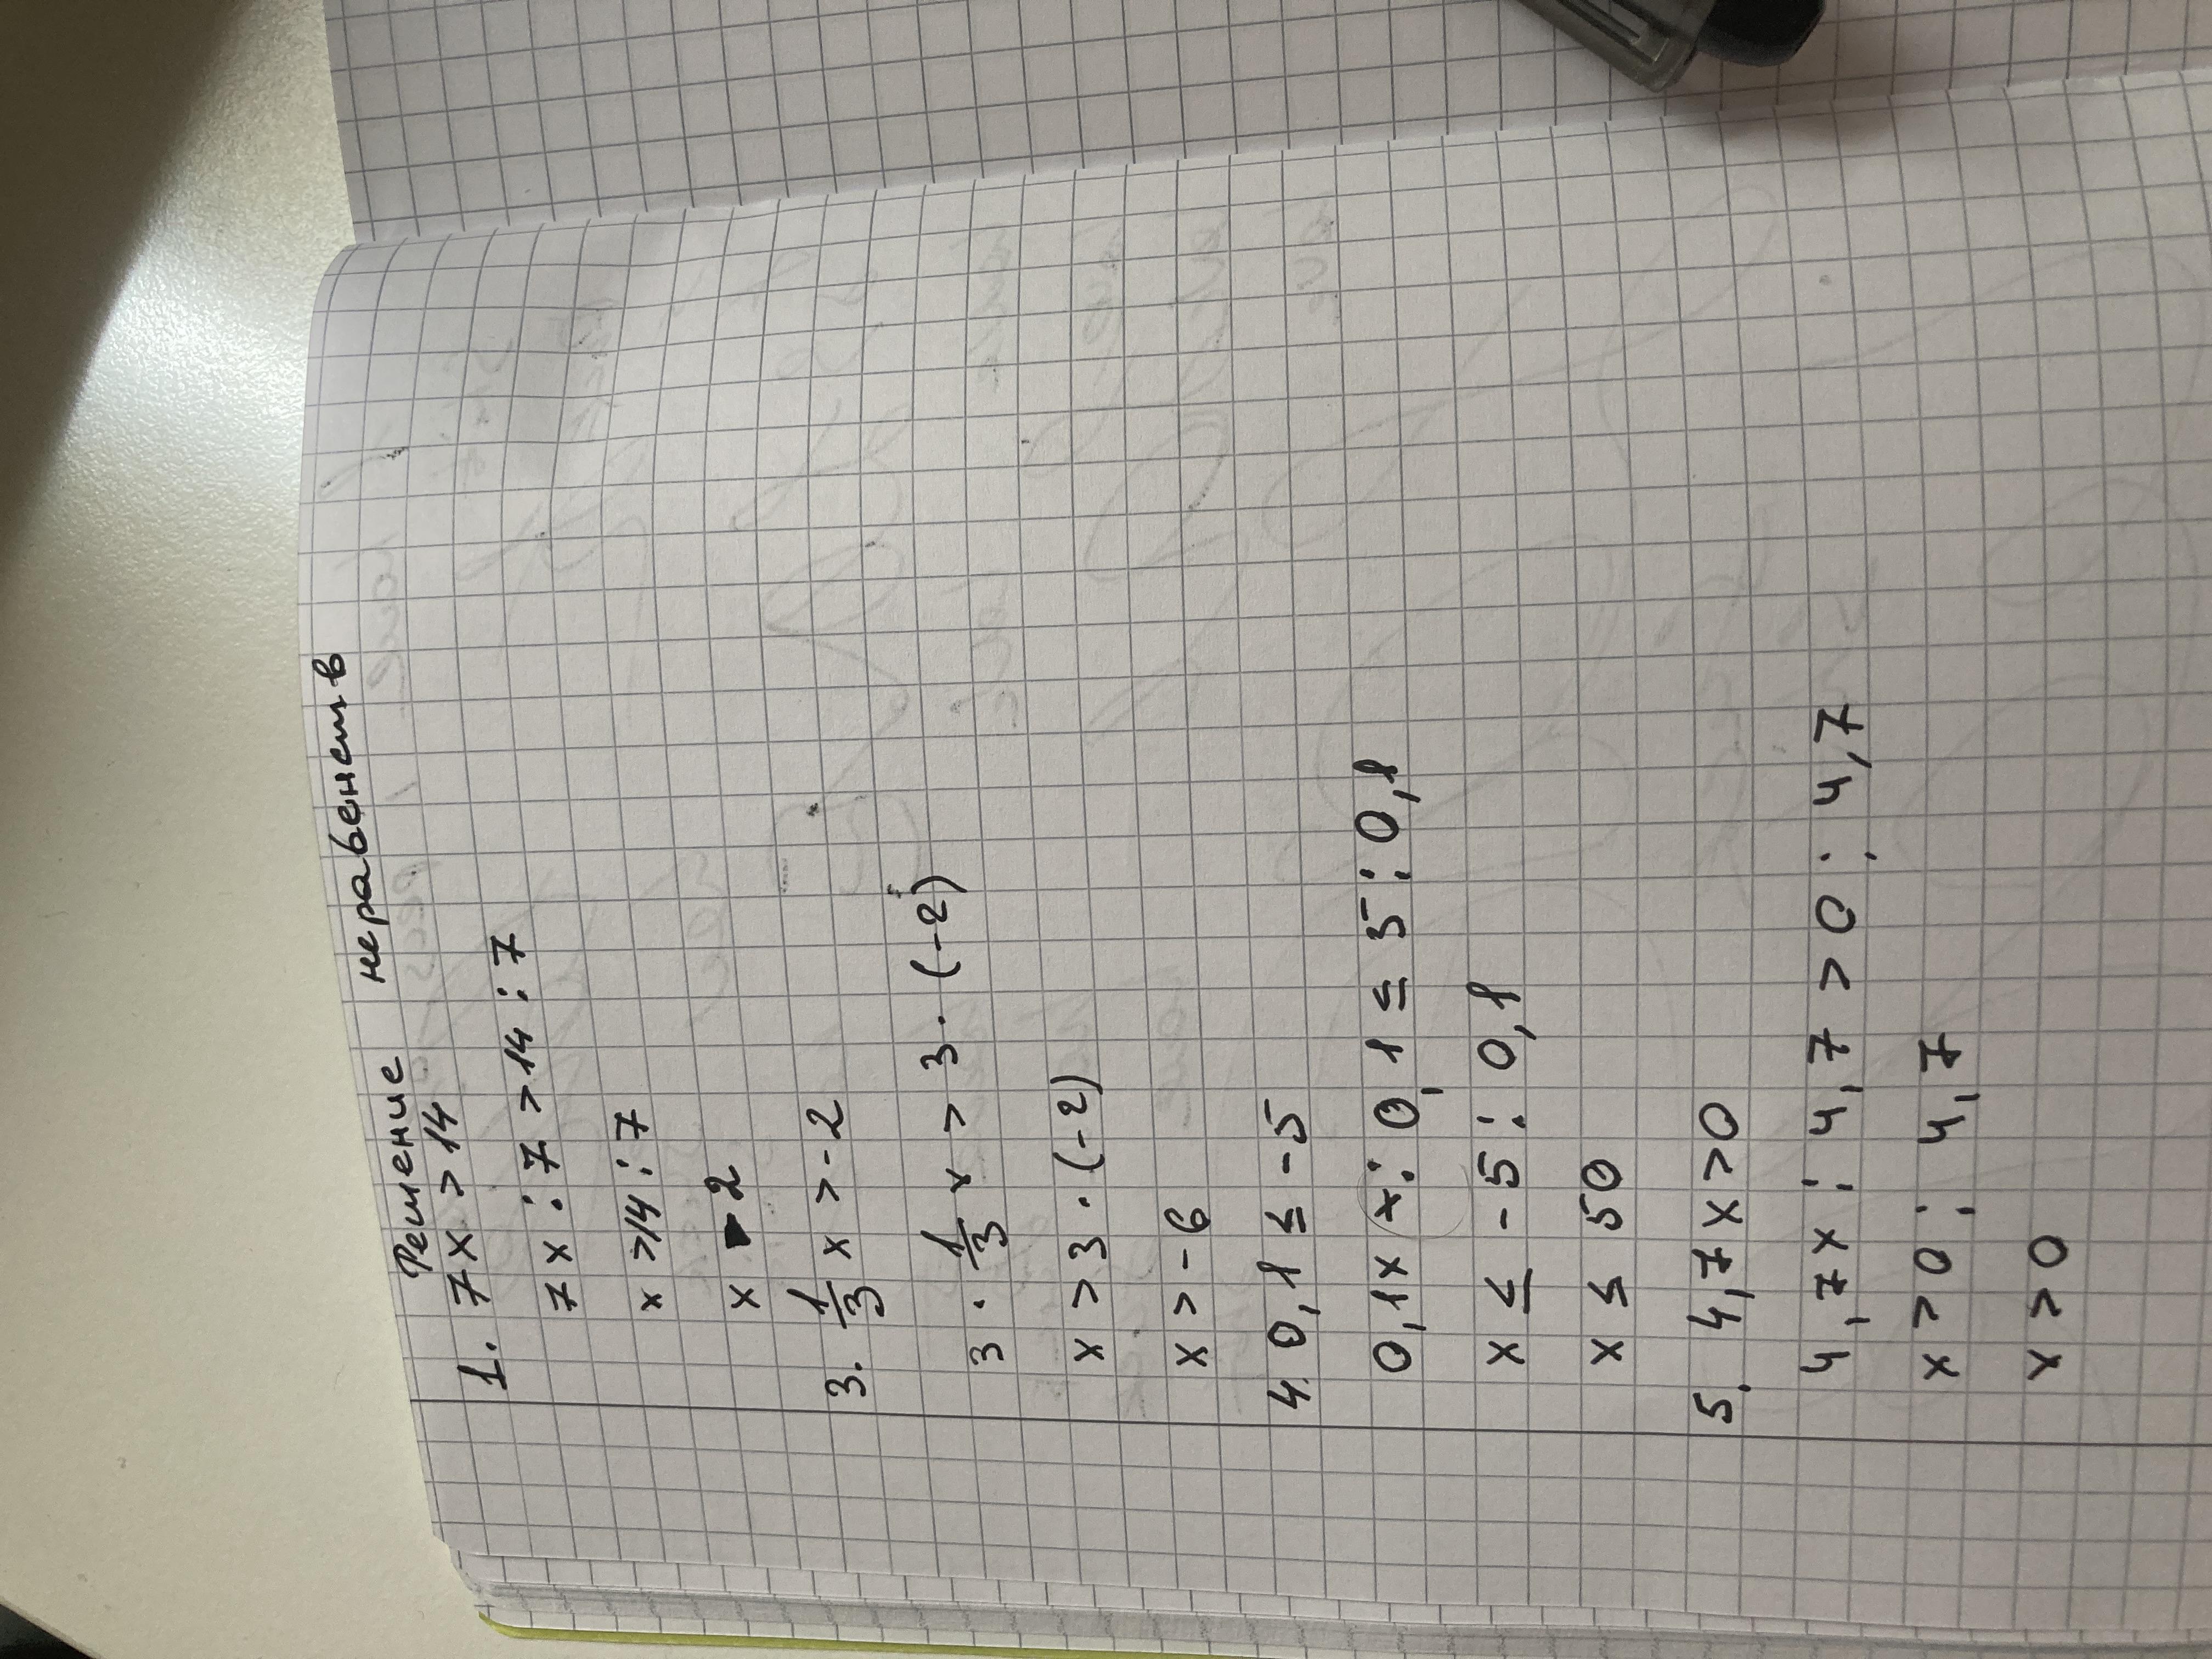 Решение неравенств
1. 7x > 14
7x : 7 > 14 : 7
x > 14 : 7
x > 2
3. 1/3 x > -2
3 · 1/3 x > 3 · (-2)
x > 3 · (-2)
x > -6
4. 0,1 ≤ -5
0,1x x : 0,1 ≤ 5 : 0,1
x ≤ -5 : 0,1
x ≤ 50
5. 4,7x > 0
4,7x : 4,7 > 0 : 4,7
x > 0 : 4,7
x > 0